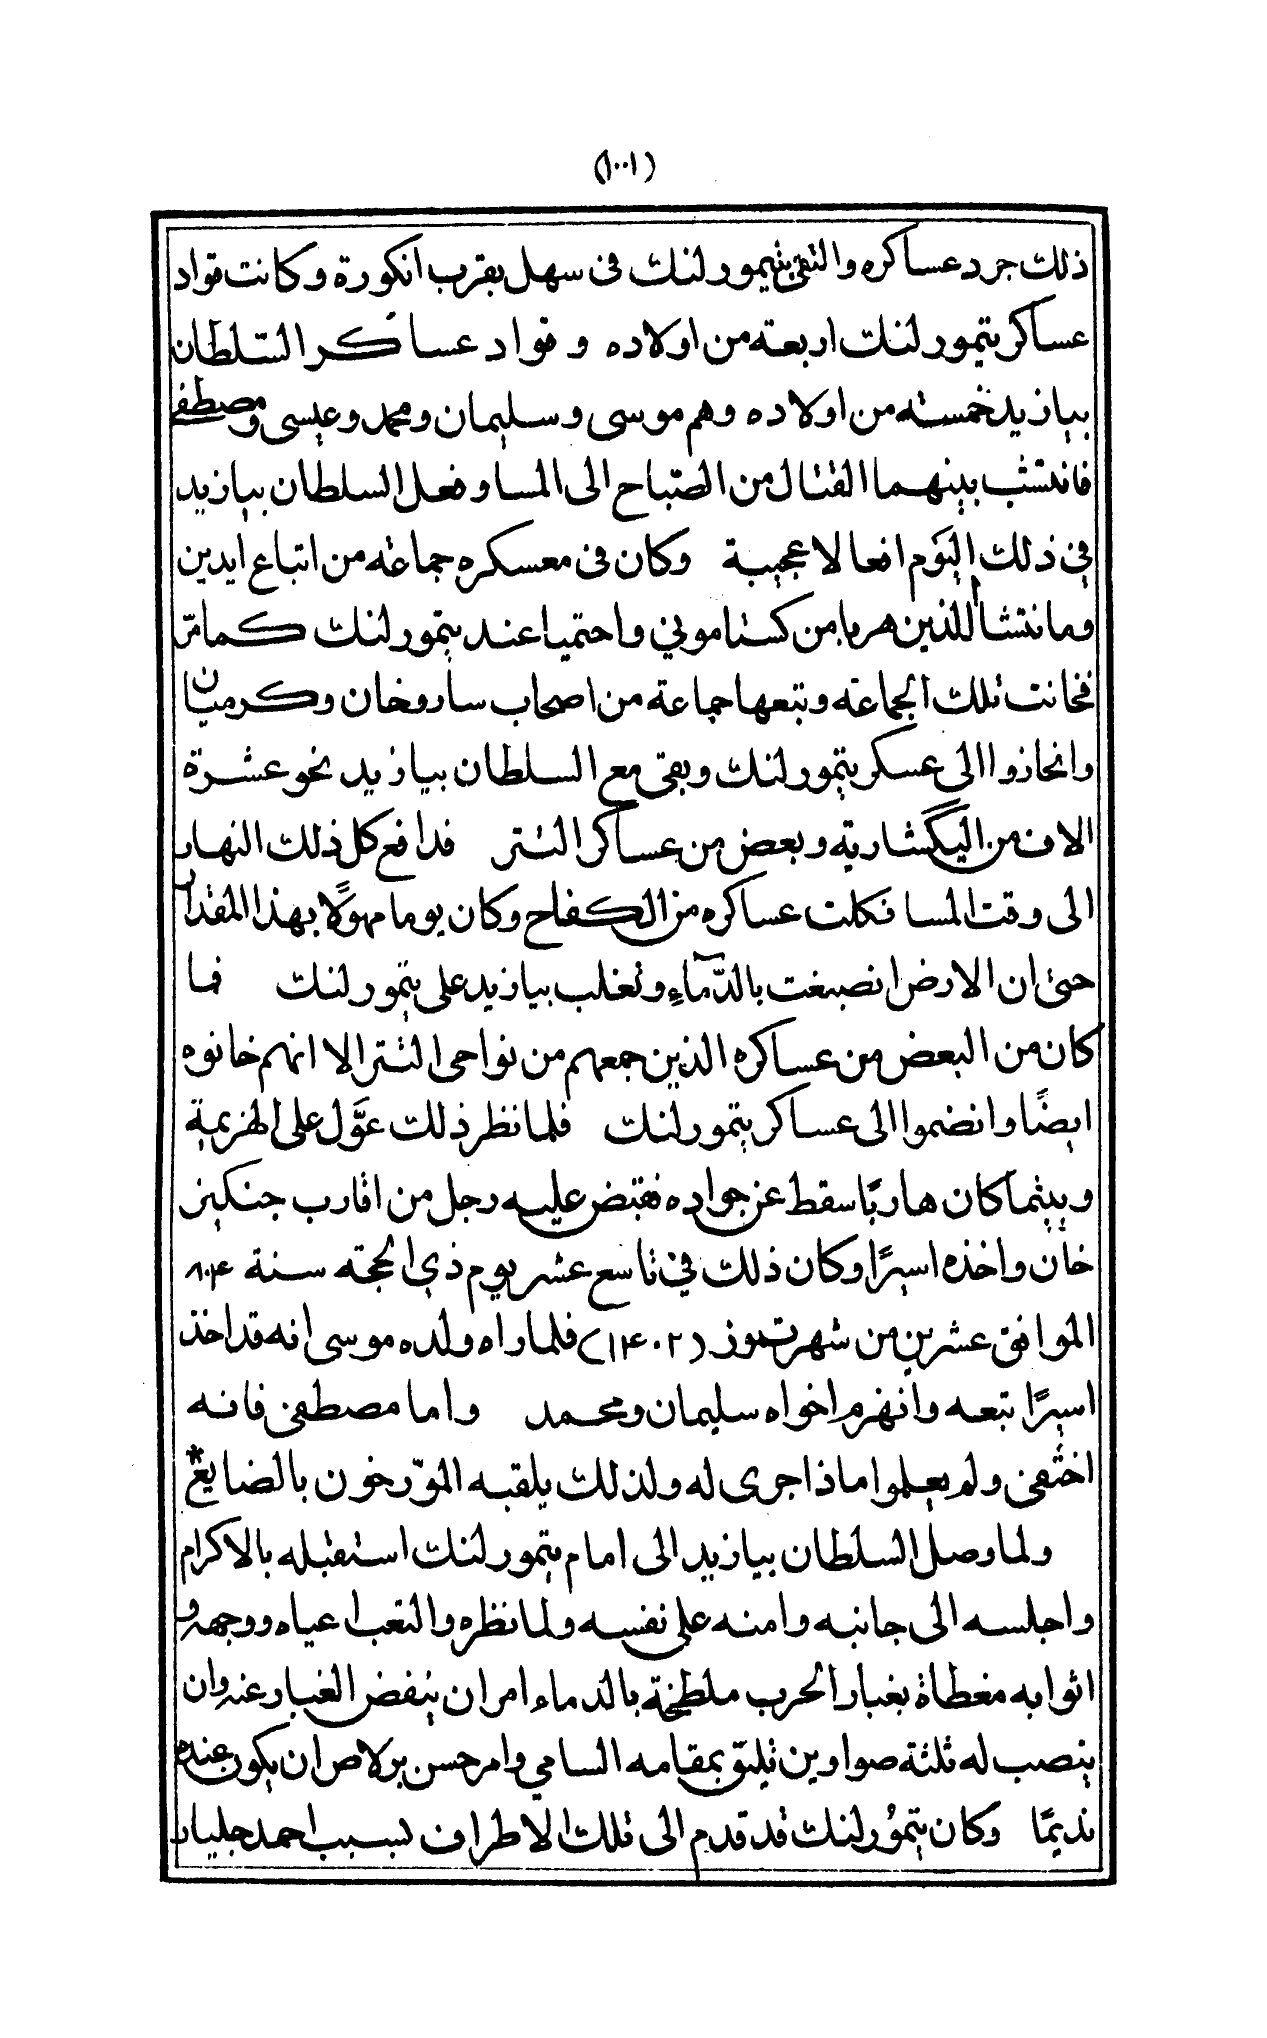 (١٠٠١)
ذلك جرد عساكره والتقى بتيمورلنك فى سهل بقرب انكورة وكانت قواد
عساكر تيمورلنك اربعة من اولاده وقواد عساكر السّلطان
بيازيد خمسة من اولاده وهم موسى وسليمان ومحمد وعيسى ومصطفى
فانتشب بينهما القتال من الصّباح الى المسا وفعل السلطان بيازيد
في ذلك اليَوم افعالا عجيبة وكان فى معسكره جماعة من اتباع ايدين
ومانتشا اللذين هربا من كستاموني واحتميا عند تيمورلنك كما مرّ
فخانت تلك الجماعة وتبعها جماعة من اصحاب ساروخان وكرميان
وانحازوا الى عسكر تيمورلنك وبقى مع السلطان بيازيد نحو عشرة
الاف من اليكَشارية وبعض من عساكر التتر فدافع كل ذلك النهار
الى وقت المسا فكلت عساكره من الكفاح وكان يوما مهولًا بهذا المقدار
حتىٰ ان الارض انصبغت بالدّمآءِ وتغلب بيازيد على تيمورلنك فما
كان من البعض من عساكره الذين جمعهم من نواحى التتر الا انهم خانوه
ايضًا وانضموا الى عساكر تيمورلنك فلما نظر ذلك عوَّل على الهزيمة
وبينما كان هاربًا سقط عن جواده فقبض عليه رجل من اقارب جنكيز
خان واخذه اسيرًا وكان ذلك في تاسع عشر يوم ذي الحجة سنة ٨٠٤
الموافق عشرين من شهر تموز (١٤٠٢) فلما راه ولده موسى انه قد اخذ
اسيرًا تبعه وانهزم اخواه سليمان ومحمد واما مصطفى فانه
اختفى ولم يعلموا ماذا جرى له ولذلك يلقبه المورّخون بالضايع *
ولما وصل السلطان بيازيد الى امام تيمورلنك استقبله بالاكرام
واجلسه الى جانبه وامنه على نفسه ولما نظره والتعب اعياه ووجهه و
اثوابه مغطاة بغبار الحرب ملطخة بالدماء امر ان ينفض الغبار عنه وان
ينصب له ثلثة صواوين تليق بمقامه السامي وامر حسن برلاص ان يكون عنده
نديمًا وكان تيمورلنك قد قدم الى تلك الاطراف بسبب احمد جليار